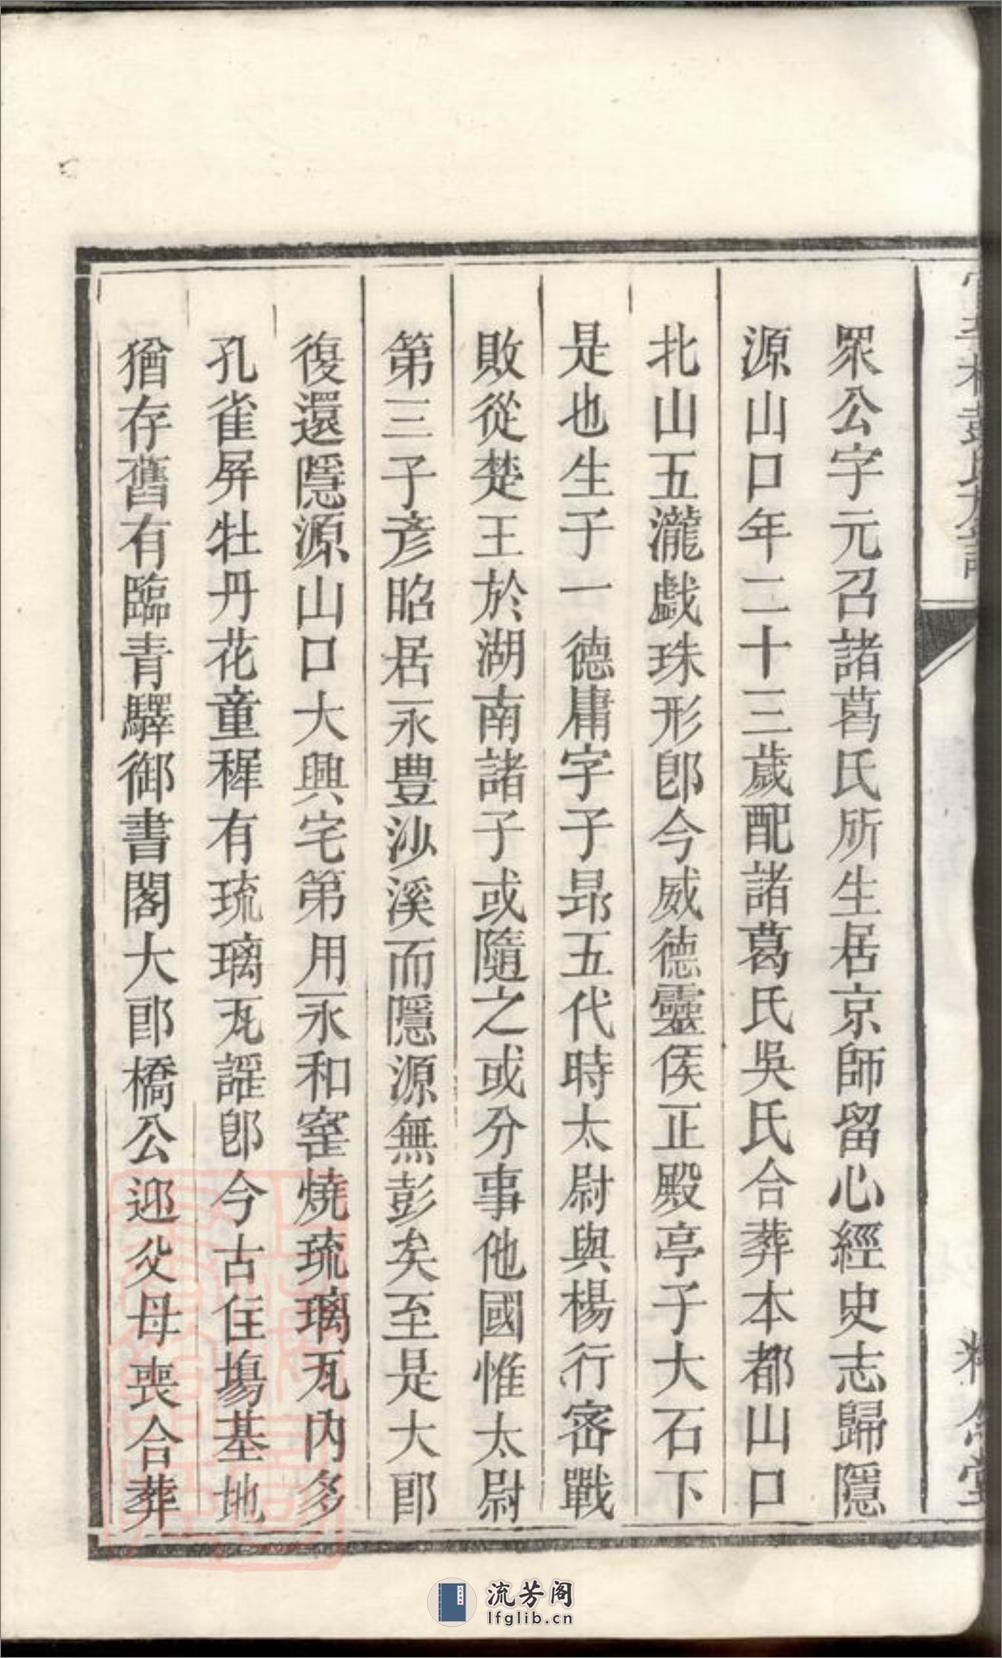 眾公字元召諸葛氏所生居京師留心經史志歸隱
源山口年二十三歲配諸葛氏吳氏合葬本都山口
北山五瀧戲珠形卽今威德靈侯正殿亭子大石下
是也生子一德庸字子昻五代時太尉與楊行密戰
敗從楚王於湖南諸子或隨之或分事他國惟太尉
第三子彥昭居永豊沙溪而隱源無彭矣至是大郎
復還隱源山口大興宅第用永和窰燒琉璃瓦內多
孔雀屏牡丹花童穉有琉璃瓦謠卽今古住塲基地
猶存舊有臨青驛御書閣大郎橋公迎父母喪合葬
流芳阁
lfglib.cn